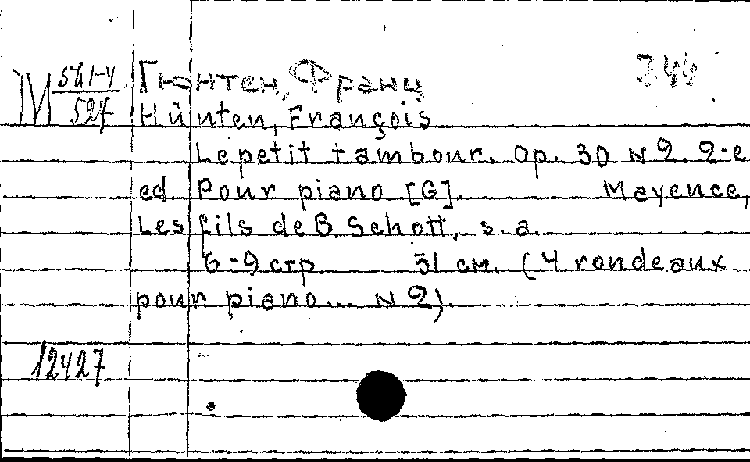 М 541-4/527 Гюнтен, Франц 344
Hünten, François
Le petit tambour. Op. 30 N 2. 2-e
ed Pour piano [G]. Mayence,
Les fils de B. Schott, s. a.
6-9 стр 31 см. (4 rondeaux
pour piano... N 2).
12427